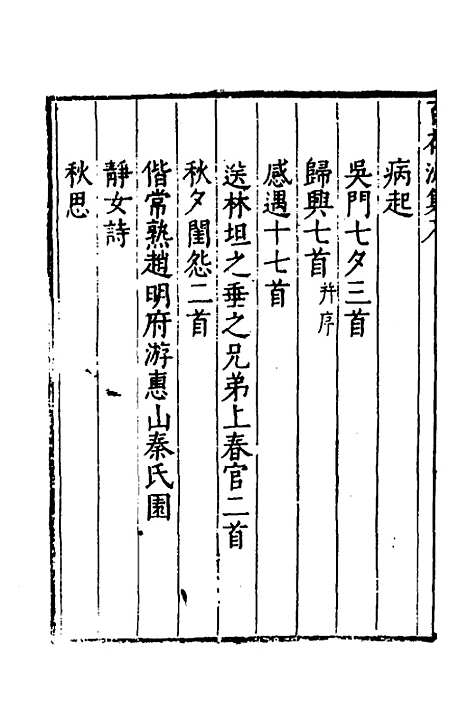 病起
吳門七夕三首
歸興七首 并序
感遇十七首
送林坦之垂之兄弟上春官二首
秋夕閨怨二首
偕常熟趙明府游惠山秦氏園
靜女詩
秋思